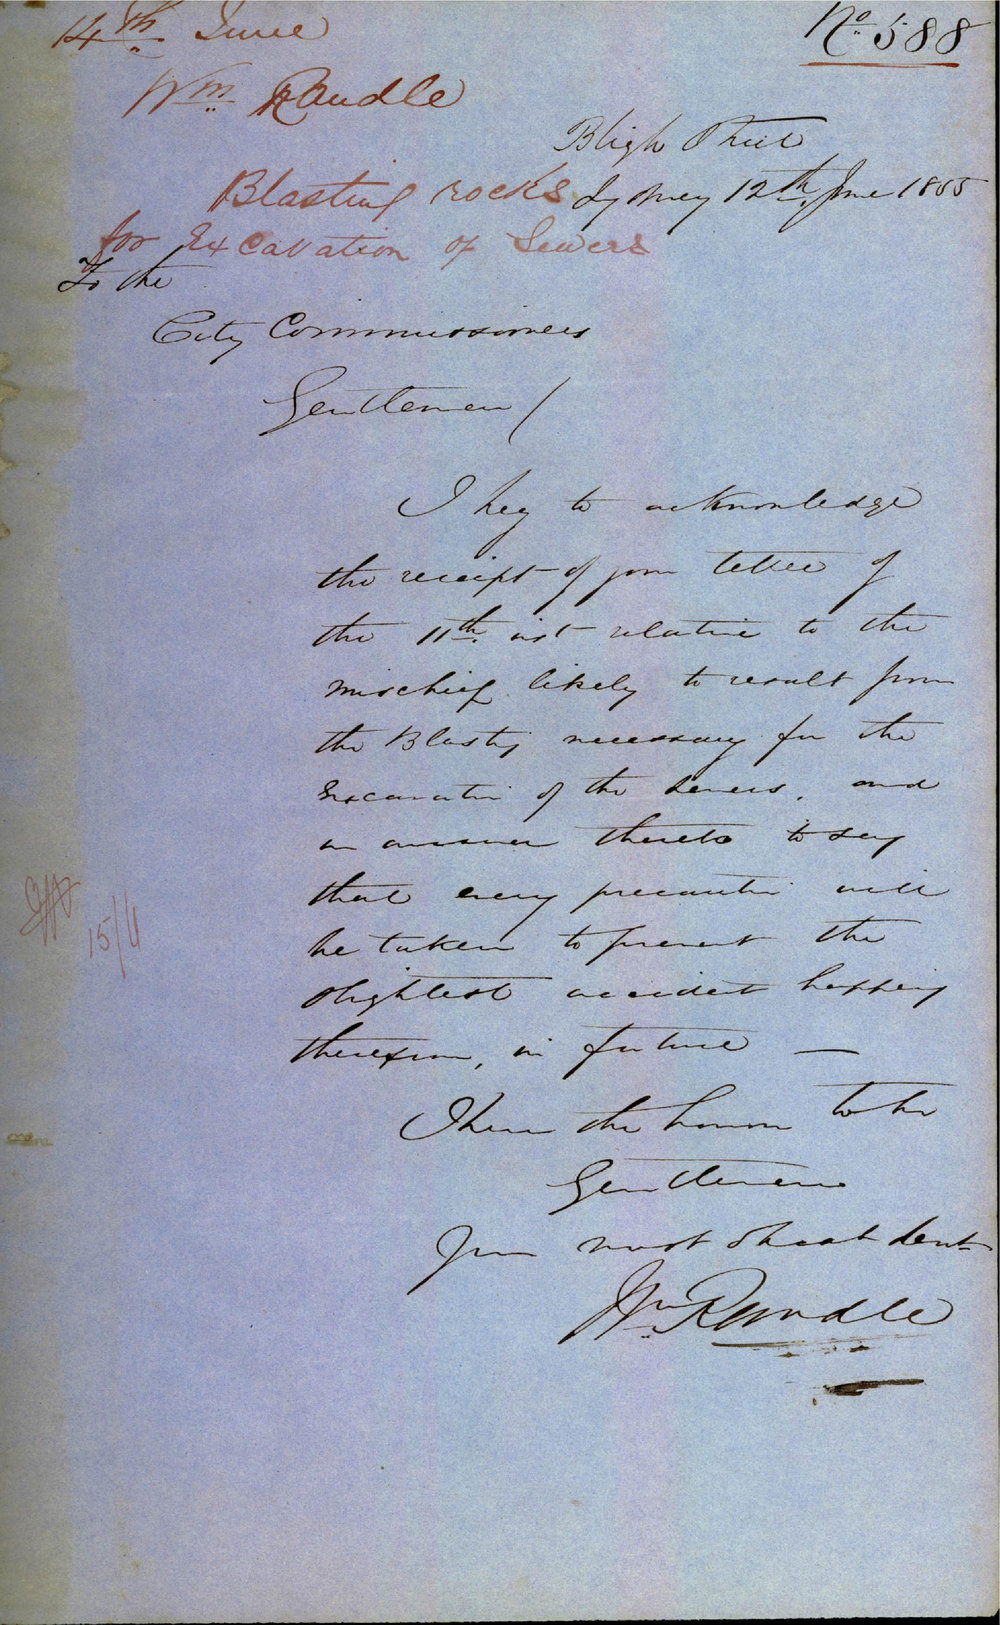 14th June
No. 588
Wm Randle
Bligh Street
Blasting rocks
Sydney 12th June 1855
for Excavation of Sewers
To the
City Commissioners
Gentlemen/
I beg to acknowledge
the receipt of your letter of
the 11th inst relative to the
mischief likely to result from
the Blasting necessary for the
Excavation of the Sewers, and
in answer thereto to say
that every precaution will
be taken to prevent the
slightest accident happening
therefrom, in future —
I have the honor to be
Gentlemen
Your most obedt Servt
Wm Randle